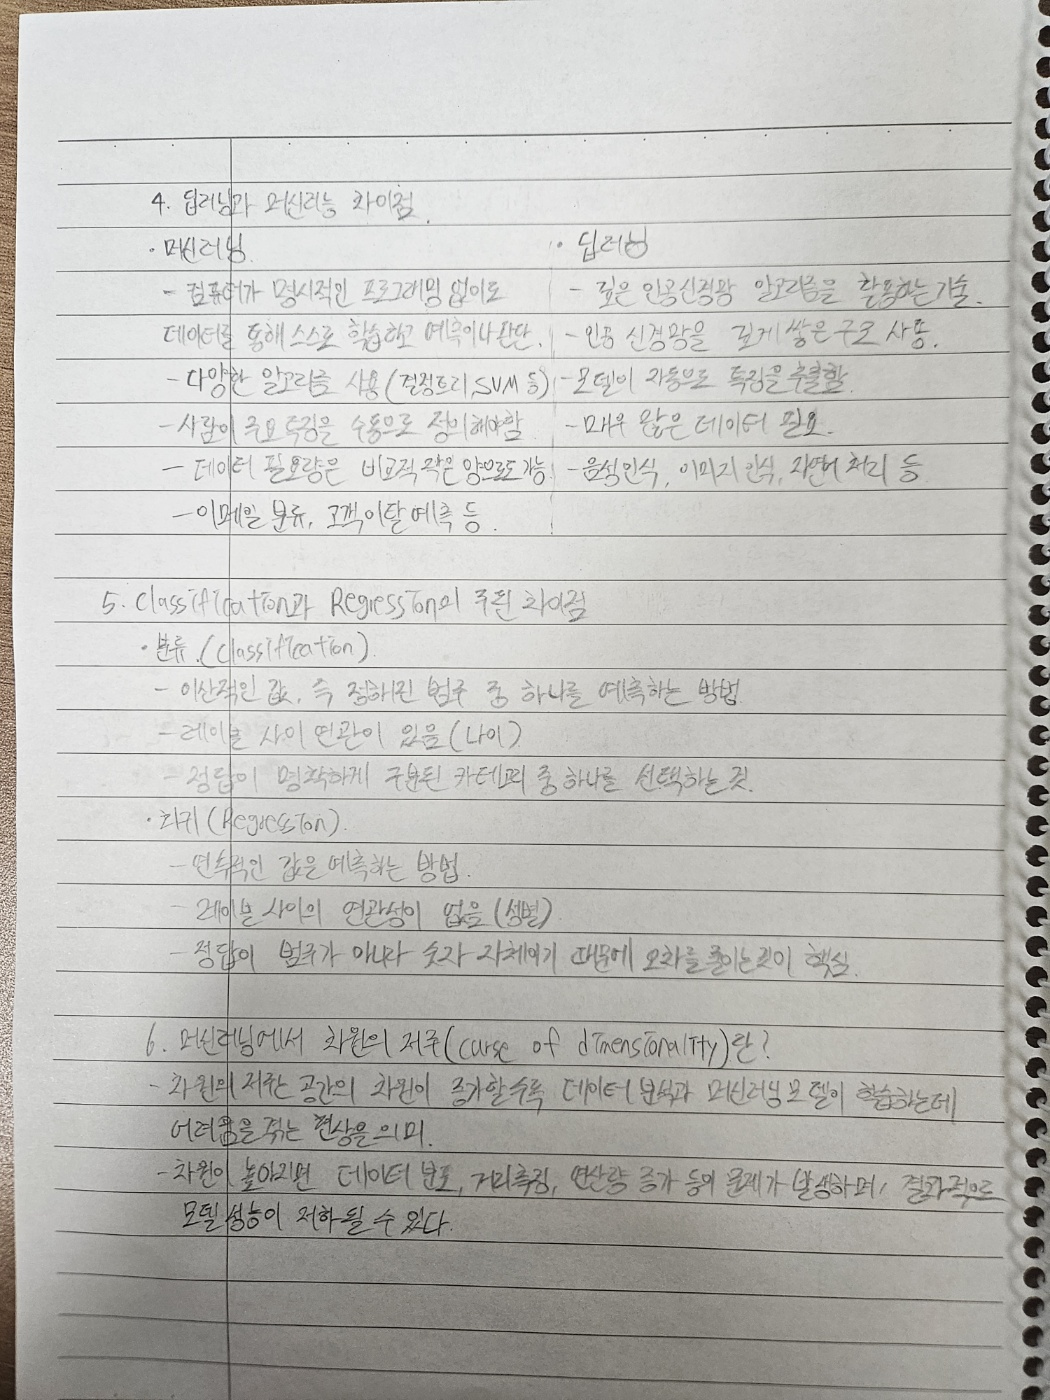 4. 딥러닝과 머신러능 차이점.
· 머신러닝.
- 컴퓨터가 명시적인 프로그래밍 없이도
데이터를 통해 스스로 학습하고 예측이나 판단.
- 다양한 알고리즘 사용 (결정트리, SVM 등)
- 사람이 주요 특징을 수동으로 정의해야함.
- 데이터 필요량은 비교적 작은 양으로도 가능
- 이메일 분류, 고객이탈 예측 등.
· 딥러닝
- 깊은 인공신경망 알고리즘을 활용하는 기술.
- 인공 신경망을 깊게 쌓은 구조 사용.
- 모델이 자동으로 특징을 추출함.
- 매우 많은 데이터 필요.
- 음성인식, 이미지 인식, 자연어 처리 등
5. Classification과 Regression의 주된 차이점
· 분류.(classification).
- 이산적인 값, 즉 정해진 범주 중 하나를 예측하는 방법
- 레이블 사이 연관이 있음 (나이)
- 정답이 명확하게 구분된 카테고리 중 하나를 선택하는 것.
· 회귀 (Regression).
- 연속적인 값을 예측하는 방법.
- 레이블 사이의 연관성이 없음 (성별)
- 정답이 범주가 아니라 숫자 자체이기 때문에 오차를 줄이는 것이 핵심.
6. 머신러닝에서 차원의 저주(curse of dimensionality)란?
- 차원의 저주란 공간의 차원이 증가할수록 데이터 분석과 머신러닝 모델이 학습하는데
어려움을 겪는 현상을 의미.
- 차원이 높아지면 데이터 분포, 거리측정, 연산량 증가 등의 문제가 발생하며, 결과적으로
모델 성능이 저하될 수 있다.